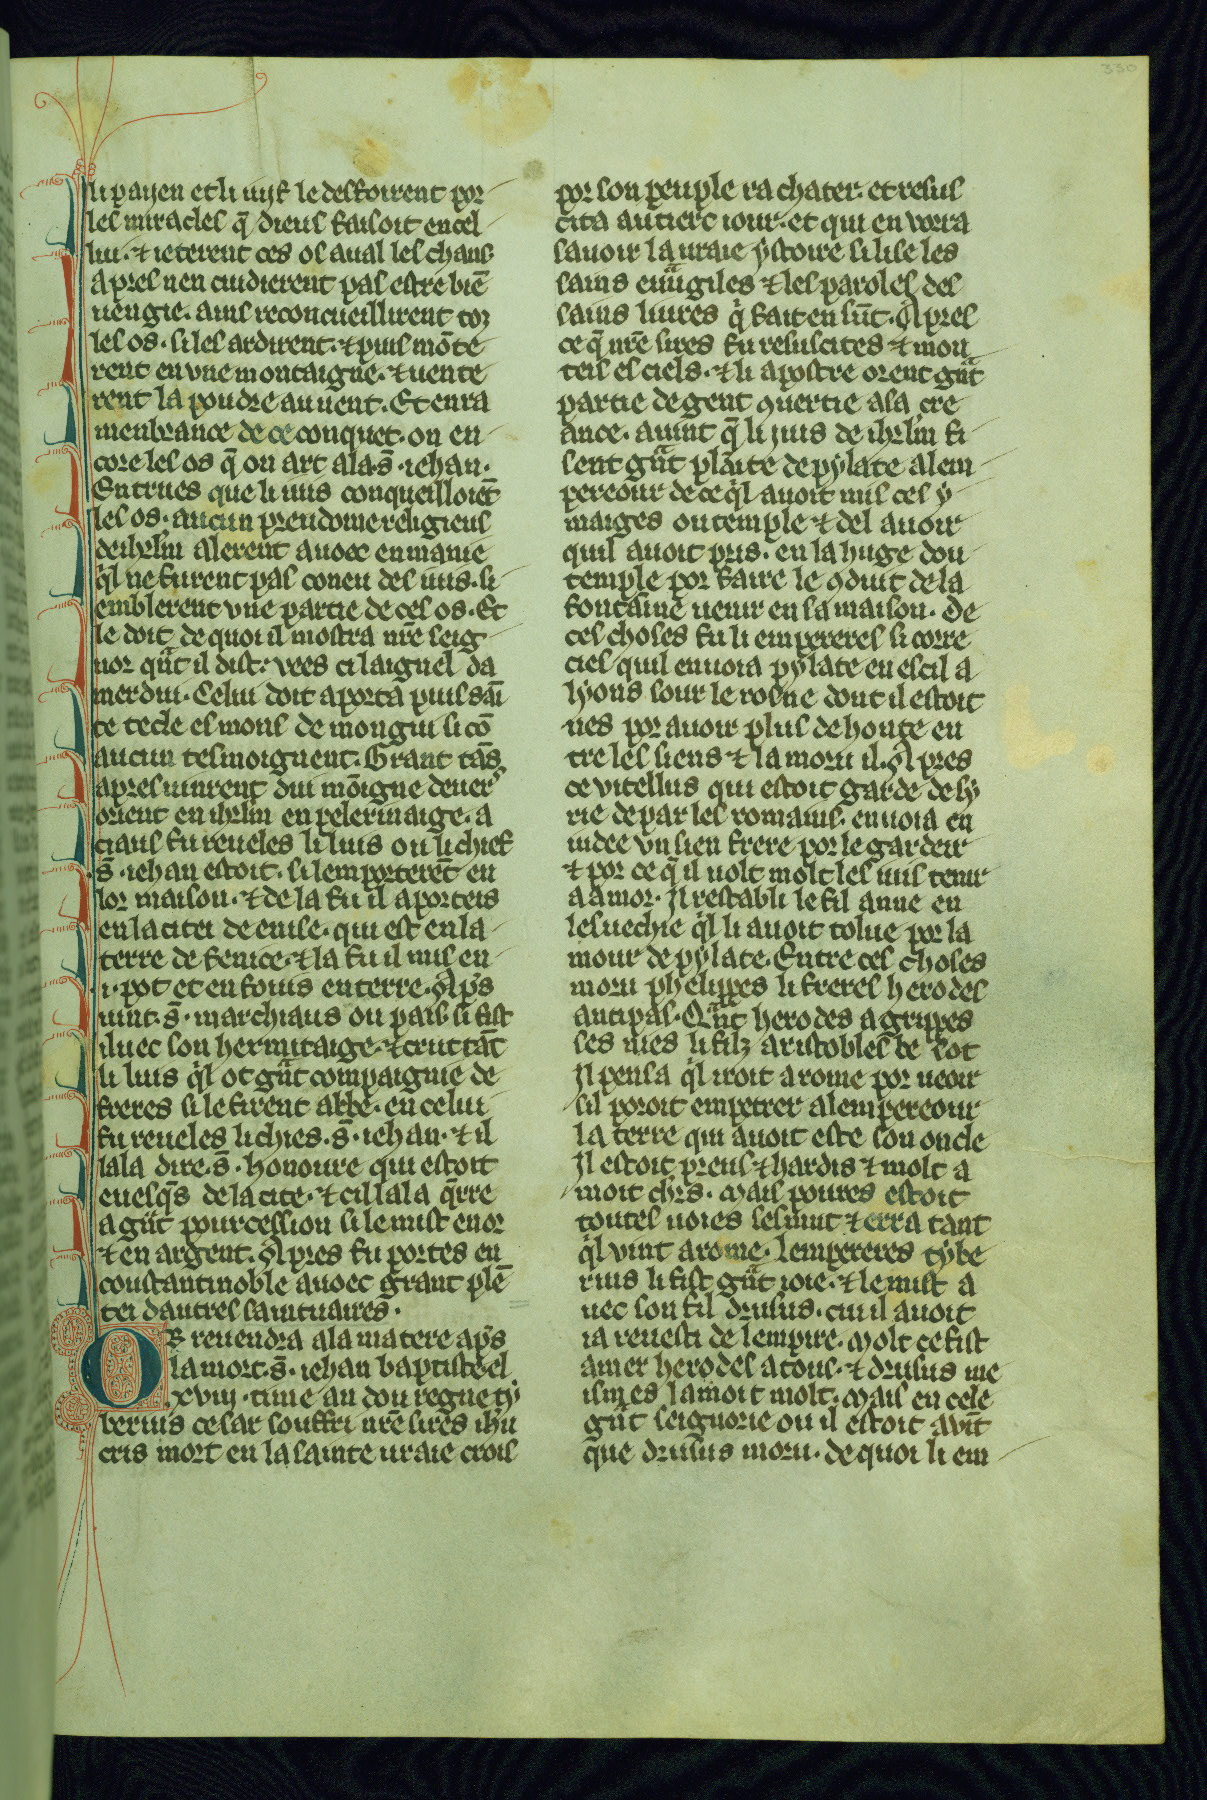 330
li payen et li iuyf le desfoirent por
les miracles q̄ dieus faisoit en cel
liu. ⁊ ieterent ces os aual les chans
apres nen cuidierent pas estre biē
uengie. ains reconcueillirent toz
les os. si les ardirent. ⁊ puis mōte
rent en vne montaigne. ⁊ uente
rent la poudre au uent. Et en ra
menbrance de ce conquet. on en
core les os q̄ on art a la .s̄. iehan.
Entrues que li iuis conqueilloiēt
les os. aucun preudome religieus
de ihrl̄m alerent auoec en manie
q̓l ne furent pas coneu des iuis. si
emblerent vne partie de ces os. Et
le doit de quoi il mostra nr̄e seig
nor qu̓t il dist. vees ci laignel da
merdiu. Celui doit aporta puis sāi
te tecle es mons de mongiu si cō
aucun tesmoignent. Grant tās
apres uinrent dui mōigne deuers
orient en ihrl̄m en pelerinaige. a
ciaus fu reueles li lius ou li chief
.s̄. iehan estoit. si lemporterēt en
lor maison. ⁊ de la fu il aporteis
en la citei de emise. qui est en la
terre de fenice. ⁊ la fu il mis en
.i. pot et enfouis en terre. Ap̓s
uint .s̄. marchiaus ou pais. si fist
iluec son hermitaige. ⁊ crut tāt
li lius q̓l ot gn̓t compaignie de
freres si le firent abbe. en celui
fu reueles li chies .s̄. iehan. ⁊ il
lala dire .s̄. honoure qui estoit
euesq̄s de la cite. ⁊ cil lala q̄rre
a gn̓t pourcession si le mist en or
⁊ en argent. Apres fu portes en
constantinoble auoec grant plē
tei dautres saintuaires.
OR reuendra a la matere ap̓s
la mort .s̄. iehan baptiste el
.xviij. time an dou regne ty
berius cesar souffri nr̄e sires ihū
cris mort en la sainte uraie crois
por son peuple rachater. et resus
cita au tierc iour. et qui en vorra
sauoir la uraie ystoire si lise les
sains euu̓giles ⁊ les paroles des
sains liures q̓ fait en sūt. Apres
ce q̄ nr̄e sires fu resuscites ⁊ mon
teis es ciels. ⁊ li apostre orent gn̓t
partie de gent ꝯuertie a la cre
ance. auint q̄ li iuis de ihrl̄m fi
sent gn̓t plāite de pylate a lem
pereour de ce q̓l auoit mis ces y
maiges ou temple ⁊ del auoir
quil auoit pris. en la huge dou
temple por faire le ꝯduit de la
fontainne uenir en sa maison. De
ces choses fu li empereres si corre
ciés quil enuoia pylate en escil a
lyons sour le rosne dont il estoit
nes por auoir plus de honte en
tre les siens ⁊ la moru il. Apres
ce vitellus qui estoit garde de sy
rie de par les romains. enuoia en
iudee vn sien frere por le gardeir
⁊ por ce q̄ il uolt molt les iuis tenir
a amor. Il restabli le fil anne en
lesuechie q̓l li auoit tolue por la
mour de pylate. Entre ces choses
moru phelippes li freres herodes
antipas. Qu̓nt herodes agrippes
ses nies li filz aristobles ce sot
Il pensa q̓l iroit a rome por ueoir
sil poroit empetrer a lempereour
la terre qui auoit este son oncle
Il estoit preus ⁊ hardis ⁊ molt a
moit chr̄s. Mais poures estoit
toutes uoies sesmut ⁊ erra tant
q̓l vint a rome. lempereres tybe
rius li fist gn̓t ioie. ⁊ le mist a
uec son fil drusus. cui il auoit
ia reuesti de lempire. Molt ce fist
amer herodes a tous. ⁊ drusus me
ismes lamoit molt. Mais en cele
gn̓t seignorie ou il estoit auīt
que drusus moru. de quoi li em